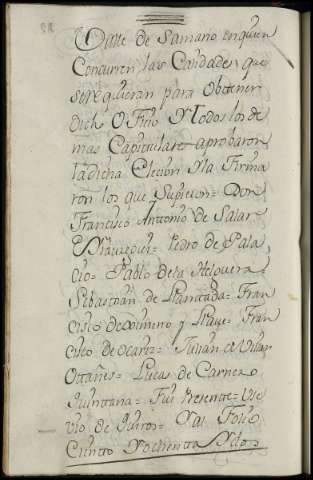 Oane de Samano en quien
Concurren las Calidades que
se requieran para obtener
dicho Ofizio Y todos los de
mas Capitulares aprobaron
la dicha Eleccion Y la Firma
ron los que Supieron= Don
Francisco Antonio de Salar
Pedro de Pala
cio= Pablo de la Helguera
Sebastian de Llantada= Fran
cisco de Dumeno y Llave= Fran
cisco de Ocariz= Julian de Villar
Ottañes= Lucas de Carnea
Quintana= Fui Presente=
de Quiros= Y al Folio
Ciento Y ochenta Y dos